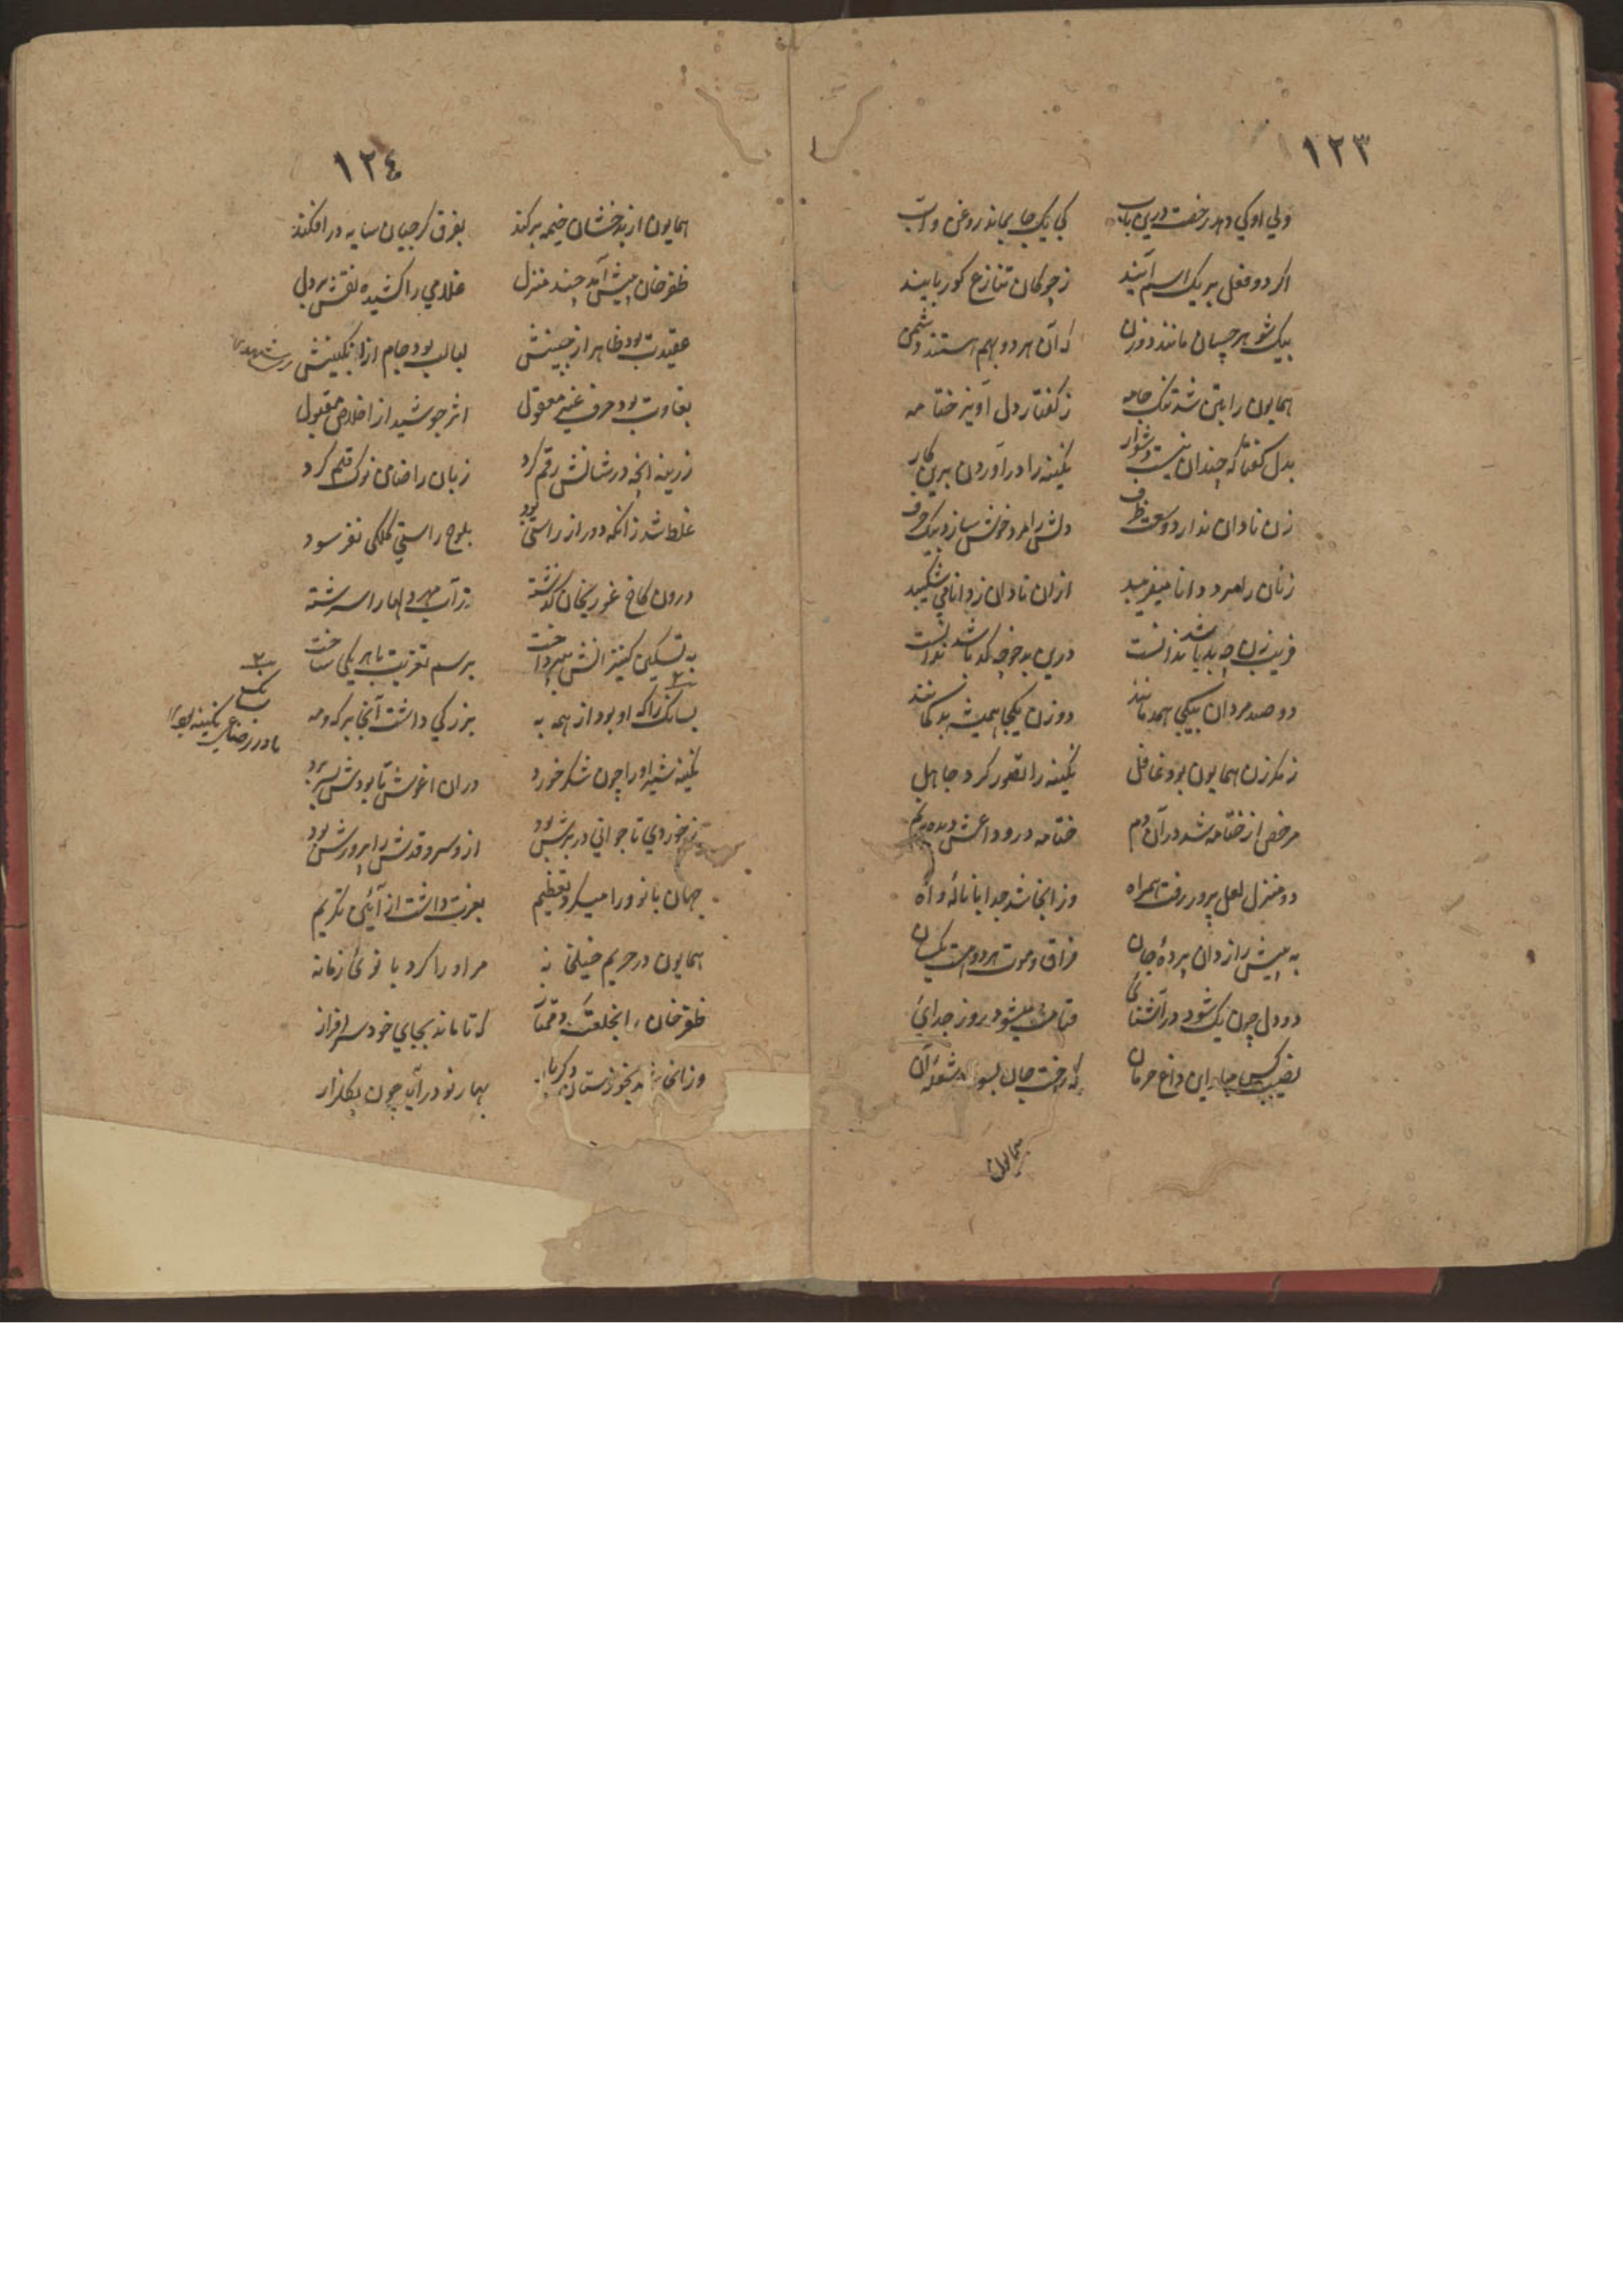 ١٢٣
ولی او کی دهد رخصت درین باب کی یک جا بماند روغن و آب
اگر دو فعل بر یک اسم آیند ز چوکان تنازع کو ربایند
بیک شو هر چسان مانند دو زن که آن هر دو بهم هستند دشمن
همایون را بتن شد تنک جامه ز کفتار دل آویز ختامه
بدل کفتا که چندان نیست دشوار نکینه را در آوردن برین کار
زن نادان ندارد وسعت ظرف دلش را مرد خوش سازد بیک حرف
زنان را مرد دانا میفریبد ازان نادان ز دانا می شکیبد
فریب زن چه بد باشد ندانست درین بد خوچه کد باشد ندانست
دو صد مردان بیکجا همد مانند دو زن یکجا همیشه بد کمانند
ز مکر زن همایون بود غافل نکینه را تصور کرد جاهل
مرخص از ختامه شد در آن دم ختامه در وداعش دیده پر نم
دو منزل لعل پرور رفت همراه وز انجا شد جدا با ناله و آه
به پیش رازدان پرده جان فراق و موت هر دو هست یکسان
دو دل چون یک شود در آشنائی قیامت میشود روز جدائی
نصیب کس مباد این داغ حرمان که رخت جان بسوزد شعله آن
همایون
١٢٤
همایون از بدخشان خیمه برکند بفرق کرجیان سایه در افکند
ظفر خان پیش آمد چند منزل غلامی را کشیده نقش بر دل
عقیدت بود ظاهر از جبینش لبالب بود جام از انکبینش
بغاوت بود حرف غیر معقول اثر جوشید از اخلاص مقبول
زرینه انچه در شانش رقم کرد زبان را ضامن نوک قلم کرد
غلط شد زانکه دور از راستی بود بلوح راستی کلکی نفرسود
درون کاخ غوریخان کذشته ز آب مهر دلها را سرشته
به تسکین کنیزانش بپرداخت برسم تعزیت با هر یکی ساخت
بسانک را که او بود از همه به بزرکی داشت آنجا بر که و مه
نکینه شیر او را چون شکر خورد در ان اغوش تا بودش بسر برد
ز خوردی تا جوانی در برش بود از و سرو قدش را پرورش بود
جهان بانو ورا میکرد تعظیم بعزت داشت از آئین تکریم
همایون در حریم خیلخانه مر او را کرد بانوی زمانه
ظفر خان را بخلعت که تا ماند بجای خود سرافراز
وز انجا شد بخوزستان بهار نو در آید چون بکلزار
بسانک
مادر رضاعی نکینه بود